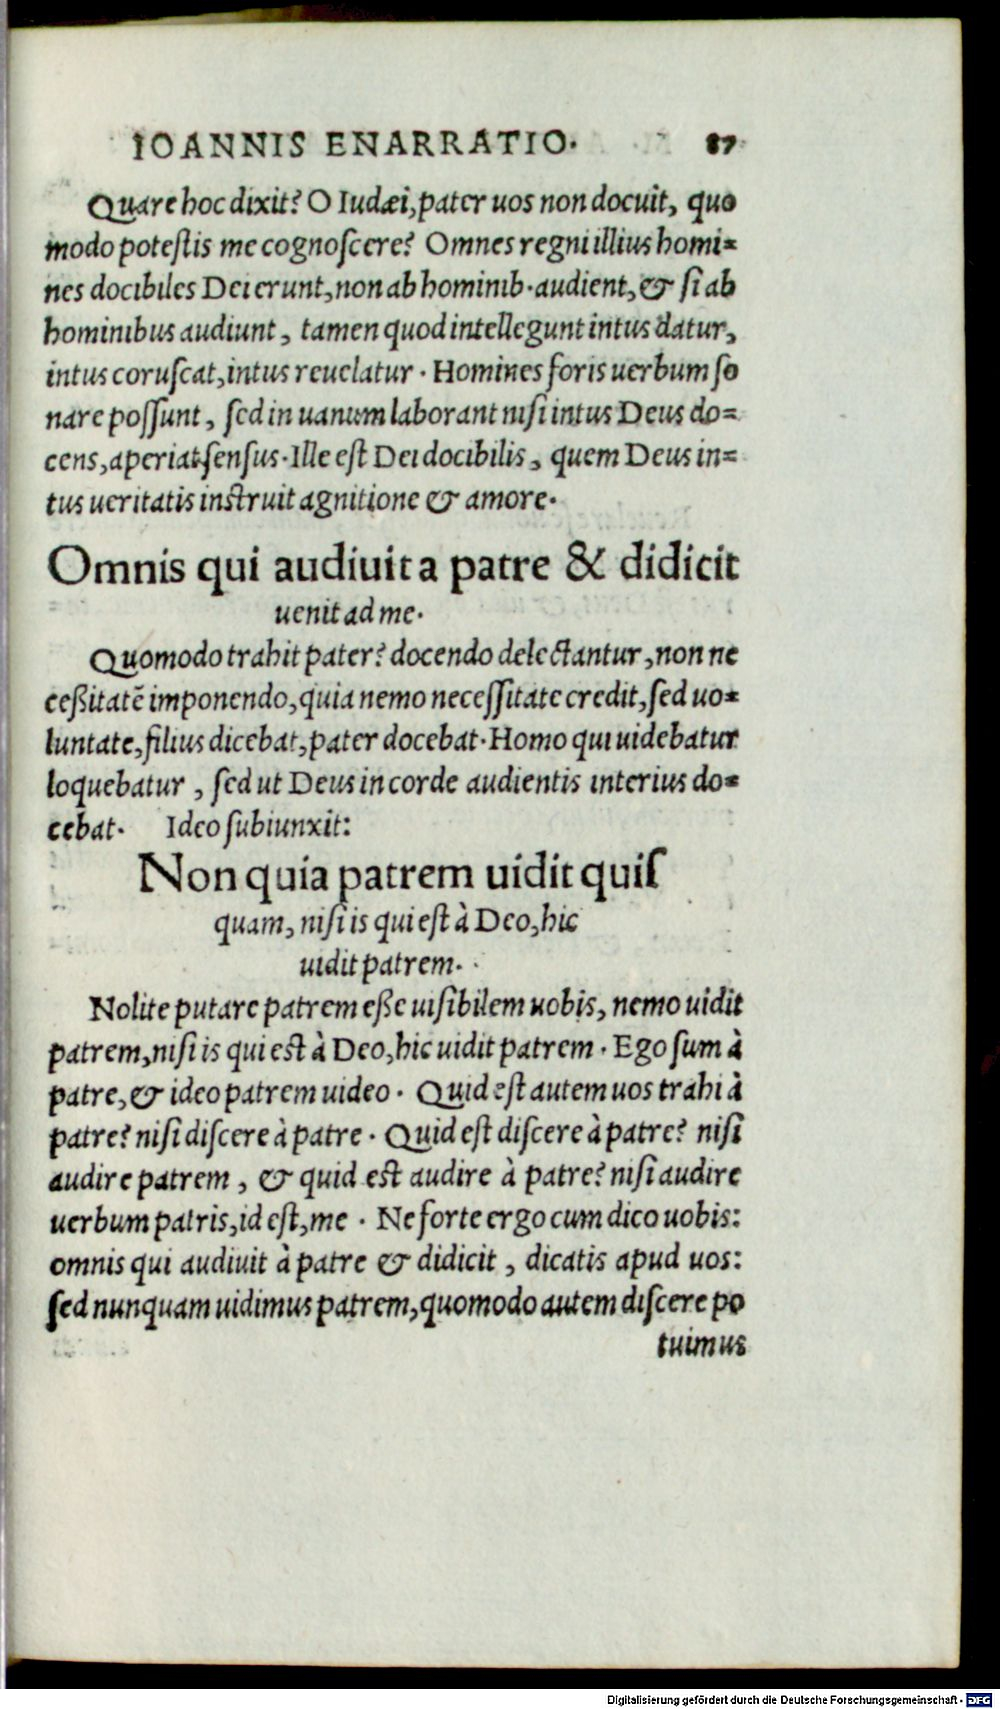 IOANNIS ENARRATIO. 87
Quare hoc dixit? O Iudæi, pater uos non docuit, quo
modo potestis me cognoscere? Omnes regni illius homi=
nes docibiles Dei erunt, non ab hominib. audient, & si ab
hominibus audiunt, tamen quod intellegunt intus datur,
intus coruscat, intus reuelatur. Homines foris uerbum so
nare possunt, sed in uanum laborant nisi intus Deus do=
cens, aperiat sensus. Ille est Dei docibilis, quem Deus in=
tus ueritatis instruit agnitione & amore.
Omnis qui audiuit a patre & didicit
uenit ad me.
Quomodo trahit pater? docendo delectantur, non ne
ceßitatē imponendo, quia nemo necessitate credit, sed uo=
luntate, filius dicebat, pater docebat. Homo qui uidebatur
loquebatur, sed ut Deus in corde audientis interius do=
cebat. Ideo subiunxit:
Non quia patrem uidit quis
quam, nisi is qui est à Deo, hic
uidit patrem.
Nolite putare patrem eße uisibilem uobis, nemo uidit
patrem, nisi is qui est à Deo, hic uidit patrem. Ego sum à
patre, & ideo patrem uideo. Quid est autem uos trahi à
patre? nisi discere à patre. Quid est discere à patre? nisi
audire patrem, & quid est audire à patre? nisi audire
uerbum patris, id est, me. Ne forte ergo cum dico uobis:
omnis qui audiuit à patre & didicit, dicatis apud uos:
sed nunquam uidimus patrem, quomodo autem discere po
tuimus
Digitalisierung gefördert durch die Deutsche Forschungsgemeinschaft - DFG